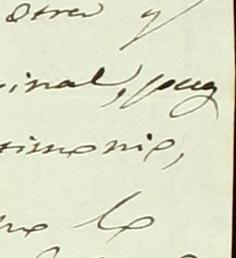 otra y
inal, pues
timonio,
no lo